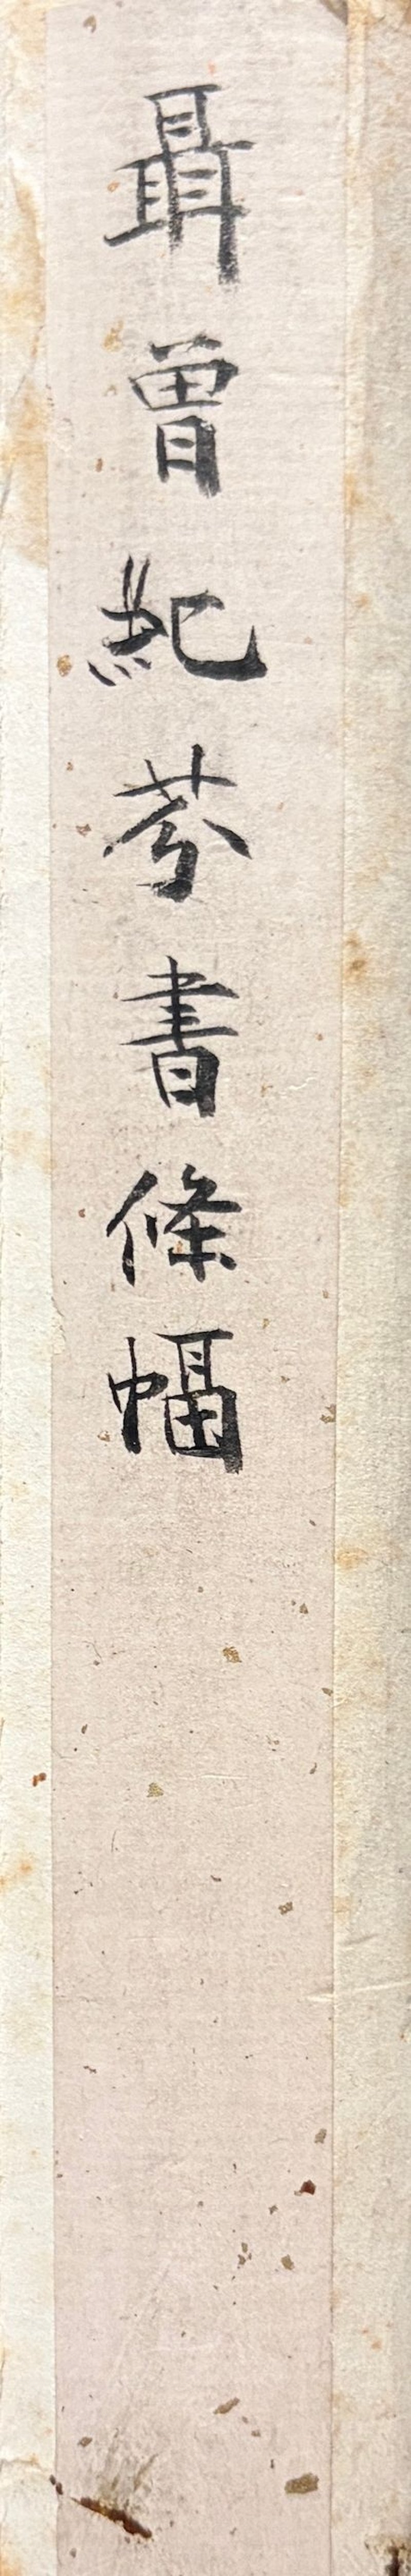 聶曾紀芬書條幅